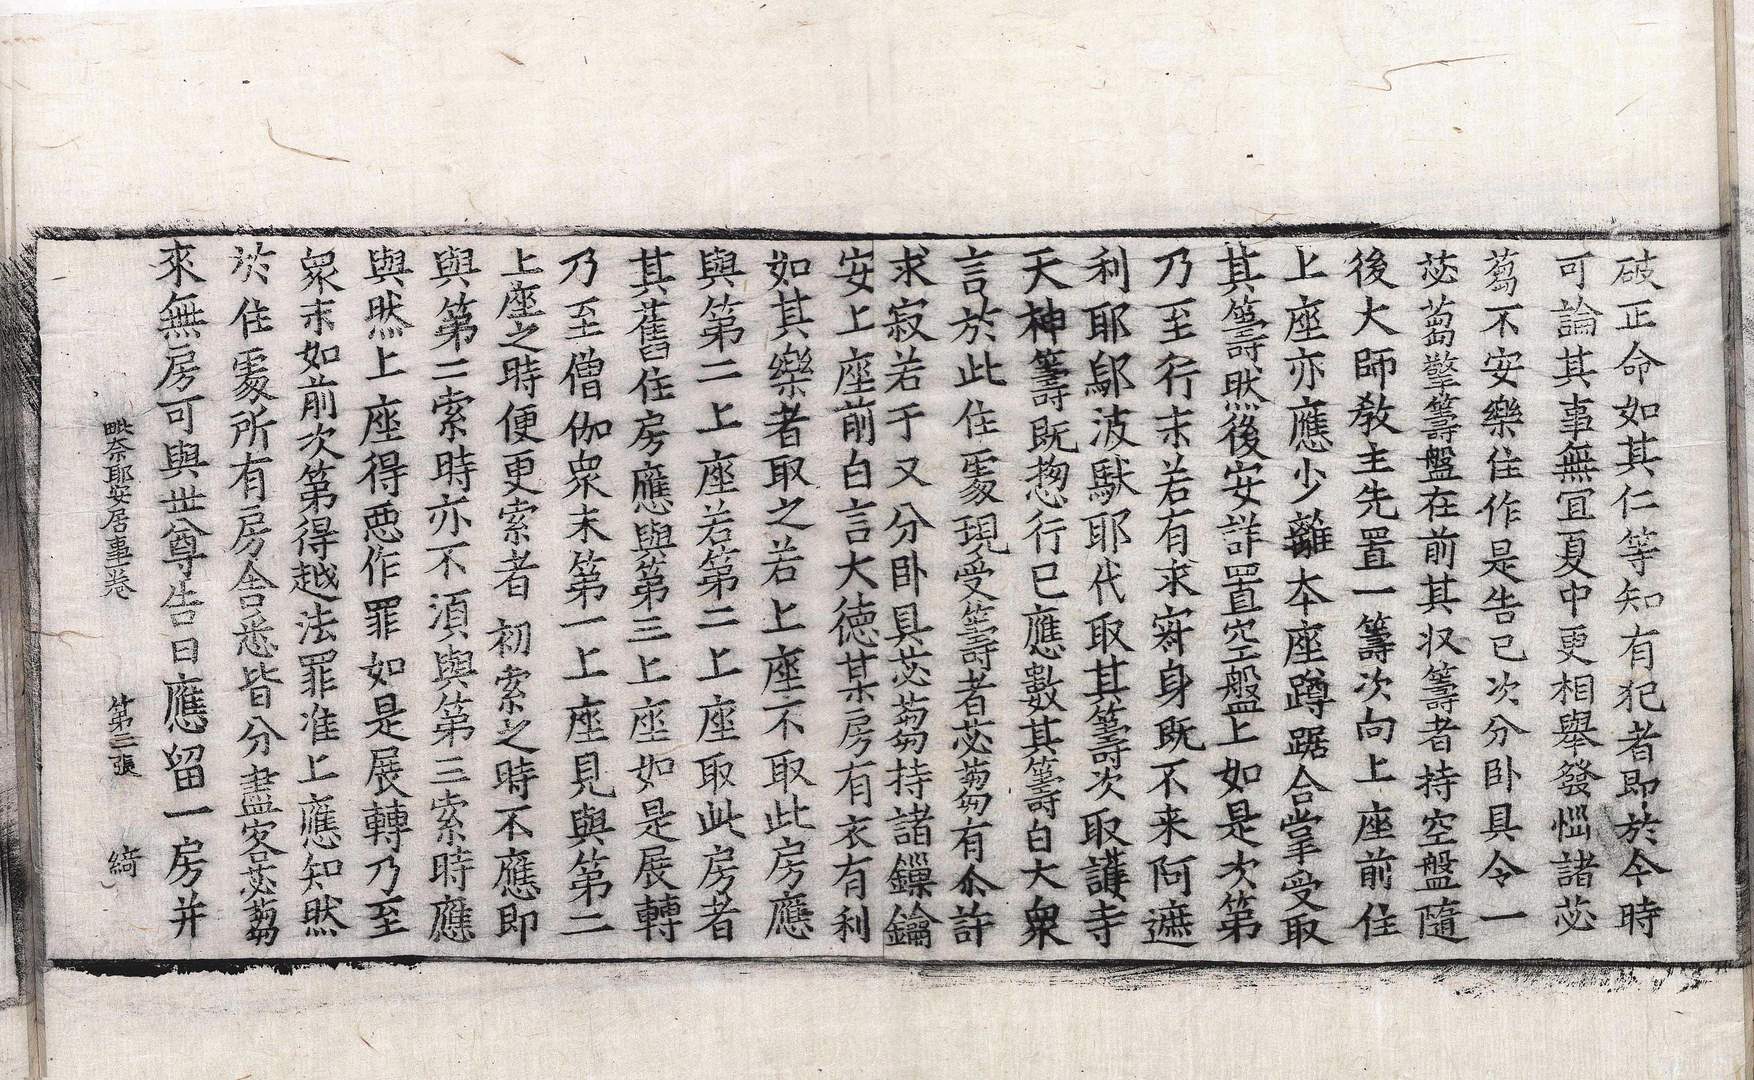 破正命如其仁等知有犯者即於今時
可論其事無宜夏中更相舉發惱諸苾
蒭不安樂住作是告已次分卧具令一
苾蒭擎籌盤在前其収籌者持空盤隨
後大師教主先置一籌次向上座前住
上座亦應少離本座蹲踞合掌受取
其籌然後安詳置空盤上如是次第
乃至行末若有求寂身既不来阿遮
利耶鄔波馱耶代取其籌次取護寺
天神籌既揔行已應數其籌白大衆
言於此住處現受籌者苾蒭有尒許
求寂若干又分卧具苾蒭持諸鏁鑰
安上座前白言大德某房有衣有利
如其樂者取之若上座不取此房應
與第二上座若第二上座取此房者
其舊住房應與第三上座如是展轉
乃至僧伽衆末第一上座見與第二
上座之時便更索者初索之時不應即
與第二索時亦不須與第三索時應
與然上座得惡作罪如是展轉乃至
衆末如前次第得越法罪准上應知然
於住處所有房舍悉皆分盡客苾蒭
來無房可與世尊告曰應留一房并
毗奈耶安居事卷 第三張 綺